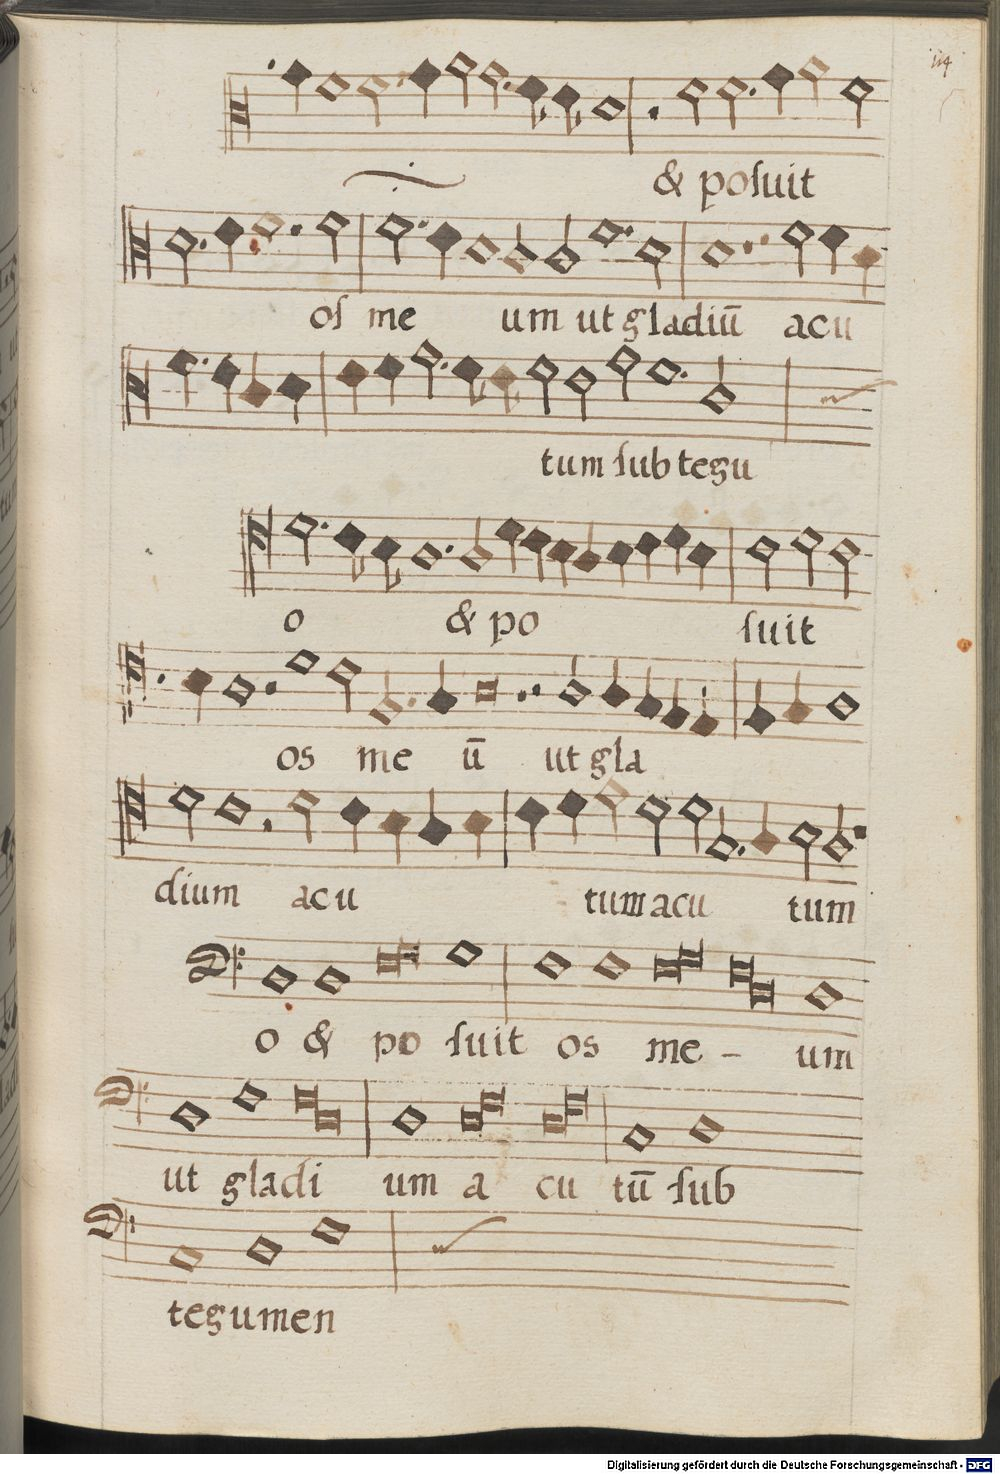 114
& poſuit
oſ me um ut gladiū acu
tum ſub tegu
o & po ſuit
os me ū ut gla
dium acu tum acu tum
o & po ſuit os me - um
ut gladi um a cu tū ſub
tegumen
Digitalisierung gefördert durch die Deutsche Forschungsgemeinschaft - DFG